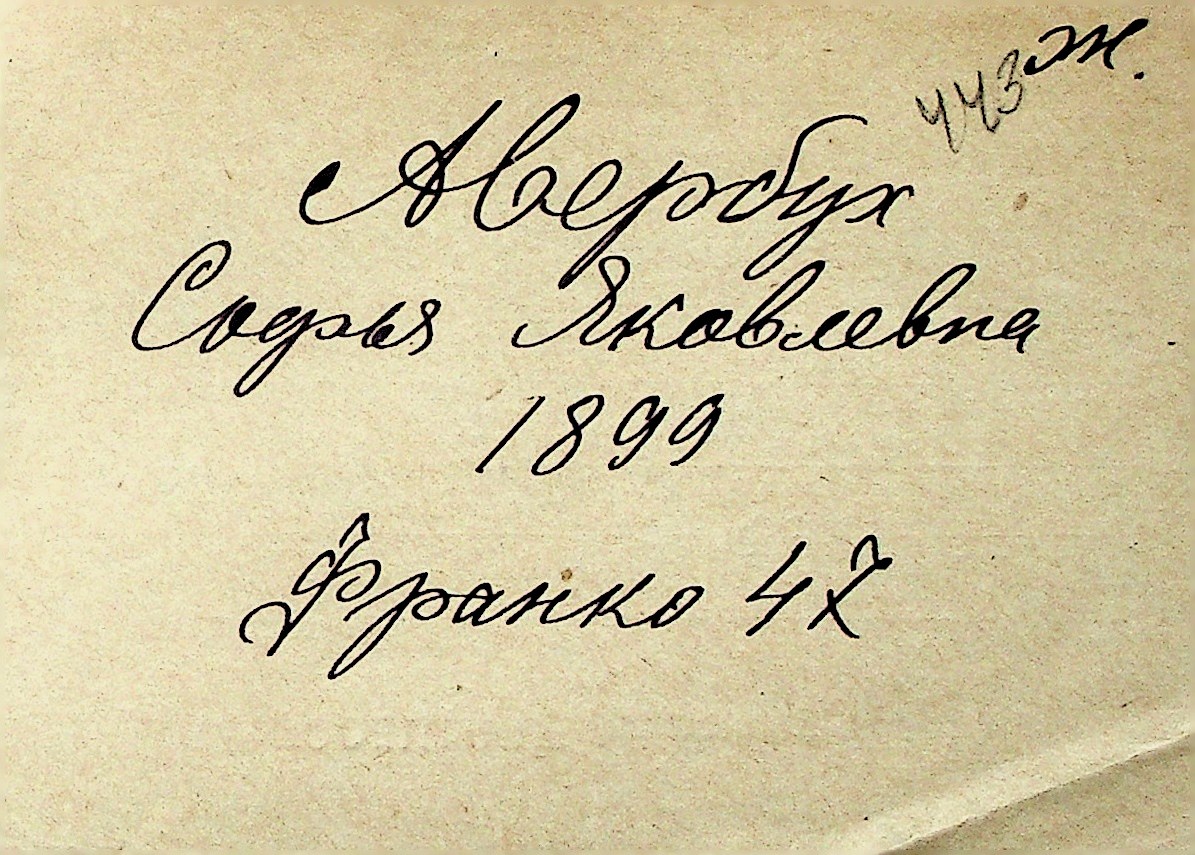 443 ж.
Авербух
Софья Яковлевна
1899
Франко 47